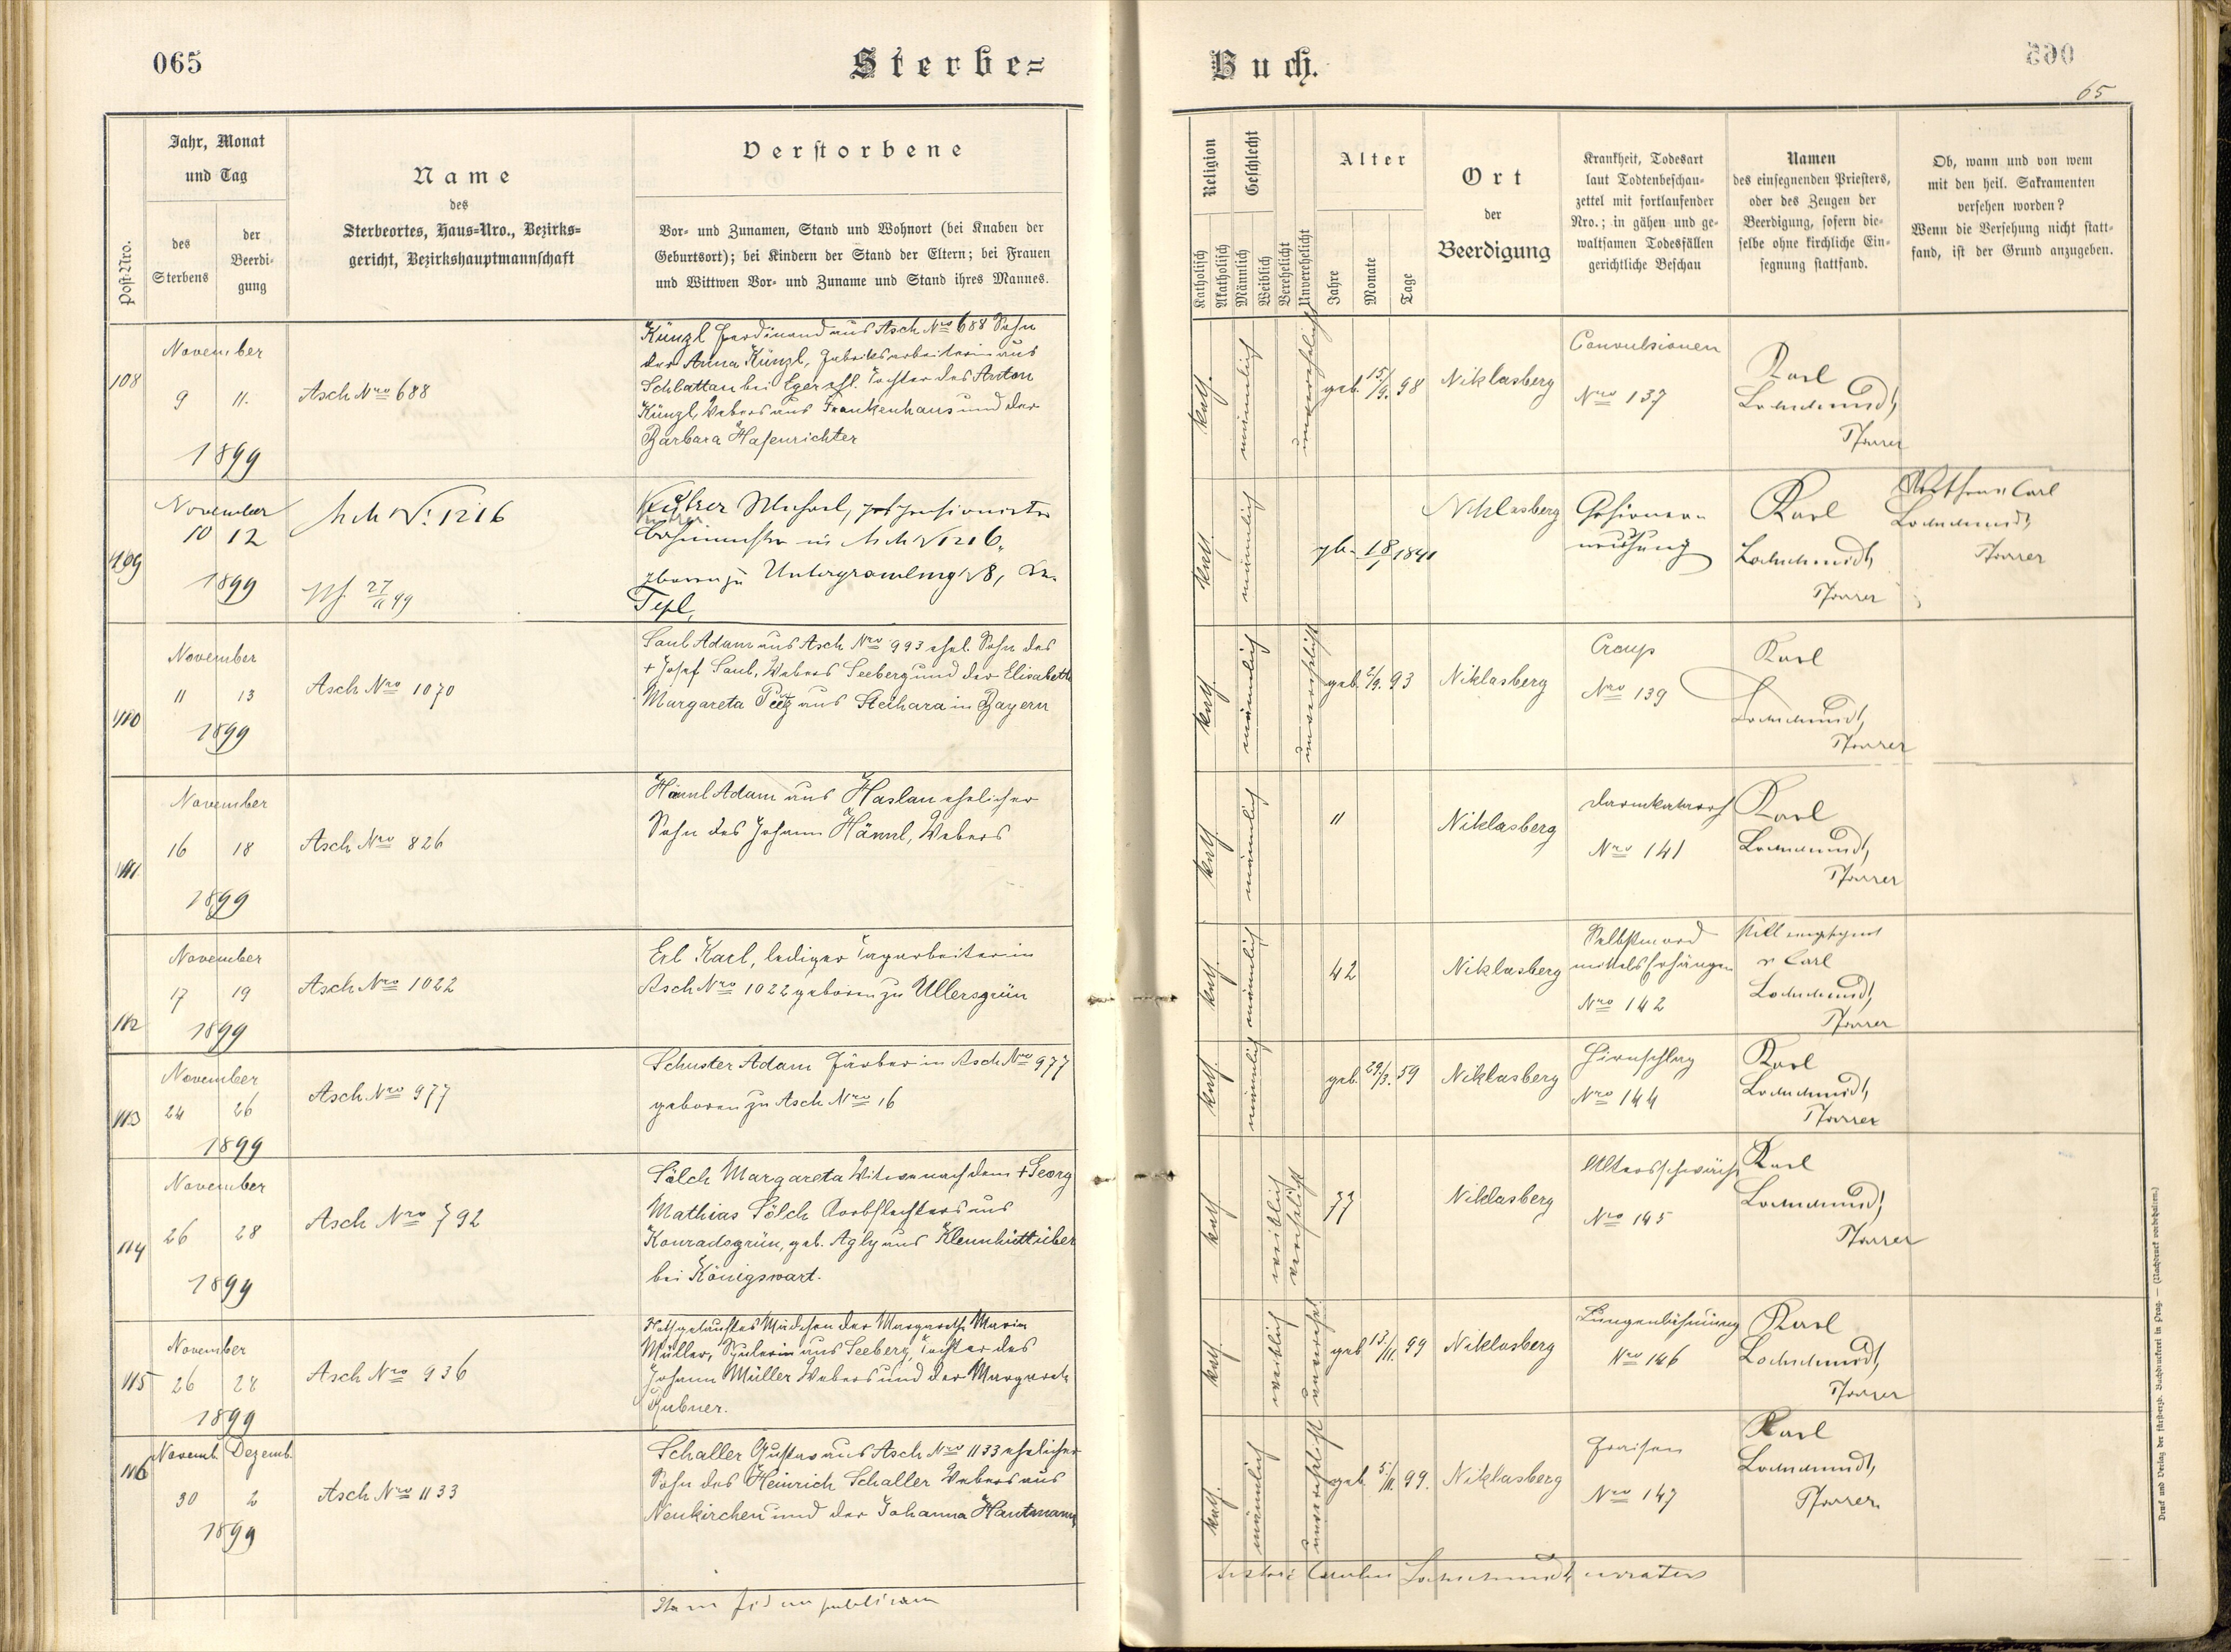 065
Sterbe=
Jahr, Monat
und Tag
des
Sterbens
der
Beerdi-
gung
Post-Nro.
Name
des
Sterbeortes, Haus-Nro., Bezirks-
gericht, Bezirkshauptmannschaft
Verstorbene
Vor- und Zunamen, Stand und Wohnort (bei Knaben der
Geburtsort); bei Kindern der Stand der Eltern; bei Frauen
und Wittwen Vor- und Zuname und Stand ihres Mannes.
108
November
9 11.
1899
Asch Nro 688
Künzl Ferdinand aus Asch Nro 688 Sohn
der Anna Künzl, Fabriksarbeiterin aus
Schlattau bei Eger ehl. Tochter des Anton
Künzl, Webers aus Frankenhaus und der
Barbara Hafenrichter
109
November
10 12
1899
Asch N. 1216
27/11 99
Michael, pensionierter
in Asch N 1216,
geboren zu Untergramling N 8, Bz.
Tepl,
110
November
11 13
1899
Asch Nro 1070
Saul Adam aus Asch Nro 993 ehel. Sohn des
+ Josef Saul, Webers Seeberg und der Elisabetha
Margareta Peetz aus in Bayern
111
November
16 18
1899
Asch Nro 826
Hännl Adam aus Haslau ehelicher
Sohn des Johann Hännl, Webers
112
November
17 19
1899
Asch Nro 1022
Erl Karl, lediger Tagarbeiter in
Asch Nro 1022 geboren zu Ullersgrün
113
November
24 26
1899
Asch Nro 977
Schuster Adam Färber in Asch Nro 977
geboren zu Asch Nro 16
114
November
26 28
1899
Asch Nro 792
Sölch Margareta Witwe nach dem + Georg
Mathias Sölch Korbflechters aus
Konradsgrün, geb. Agly aus
bei Königswart.
115
November
26 28
1899
Asch Nro 936
Nothgetauftes Mädchen der Margareth Maria
Müller, Spulerin aus Seeberg Tochter des
Johann Müller Webers und der Margareth
Rubner.
116
Novemb. Dezemb.
30 2
1899
Asch Nro 1133
Schaller Gustav aus Asch Nro 1133 ehelicher
Sohn des Heinrich Schaller Webers aus
Neukirchen und der Johanna Hautmann
fidem publicam
Buch.
65
Religion
Katholisch
Akatholisch
Geschlecht
Männlich
Weiblich
Verehelicht
Unverehelicht
Alter
Jahre
Monate
Tage
Ort
der
Beerdigung
Krankheit, Todesart
laut Todtenbeschau-
zettel mit fortlaufender
Nro.; in gähen und ge-
waltsamen Todesfällen
gerichtliche Beschau
Namen
des einsegnenden Priesters,
oder des Zeugen der
Beerdigung, sofern die-
selbe ohne kirchliche Ein-
segnung stattfand.
Ob, wann und von wem
mit den heil. Sakramenten
versehen worden?
Wenn die Versehung nicht statt-
fand, ist der Grund anzugeben.
kath.
männlich
unverehelicht
geb. 15/9. 98
Niklasberg
Convulsionen
Nro 137
Karl
Lochschmidt,
Pfarrer
kath.
männlich
geb. 1/8 1841
Niklasberg
Gehirner-
weichung
Karl
Lochschmidt,
Pfarrer
Carl
Lochschmidt,
Pfarrer
kath.
männlich
unverehelicht
geb. 2/9. 93
Niklasberg
Croup
Nro 139
Karl
Lochschmidt,
Pfarrer
kath.
männlich
11
Niklasberg
Darmkatarrh
Nro 141
Karl
Lochschmidt,
Pfarrer
kath.
männlich
42
Niklasberg
Selbstmord
mittels Erhängen
Nro 142
still eingesegnet
v Carl
Lochschmidt,
Pfarrer
kath.
männlich
geb. 29/3. 59
Niklasberg
Hirnschlag
Nro 144
Karl
Lochschmidt,
Pfarrer
kath.
weiblich
verehelicht
77
Niklasberg
Altersschwäche
Nro 145
Karl
Lochschmidt,
Pfarrer
kath.
weiblich
unverehel.
geb. 13/11. 99
Niklasberg
Lungenlähmung
Nro 146
Karl
Lochschmidt,
Pfarrer
kath.
männlich
unverehelicht
geb. 5/11. 99.
Niklasberg
Fraisen
Nro 147
Karl
Lochschmidt,
Pfarrer.
Carolus Lochschmidt,
Druck und Verlag der fürsterzb. Buchdruckerei in Prag. — (Nachdruck vorbehalten.)